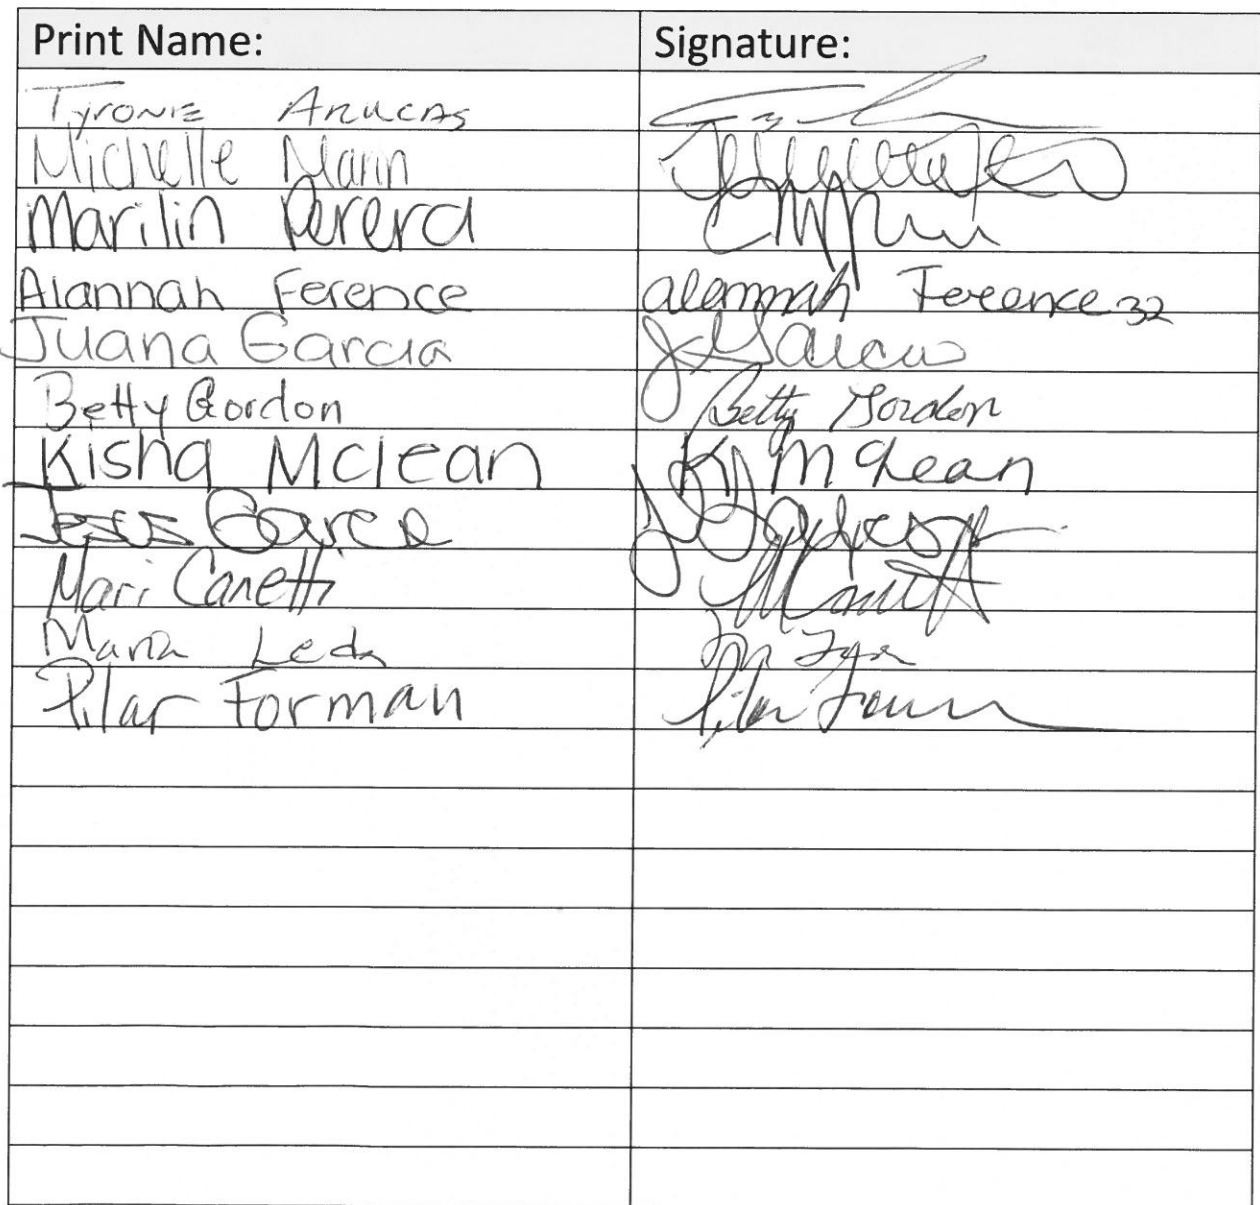 Print Name: Signature:
Tyrone
Michelle Marin
Marilin Perera
Alannah Ference alannah Ference 32
Juana Garcia J Garcia
Betty Gordon Betty Gordon
Kisha Mclean K Mclean
Mari Canetti
Maria
Pilar Forman Pilar